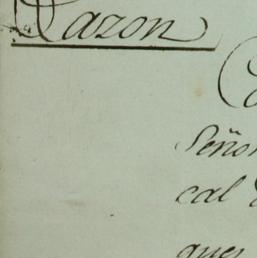 Razon
Señor
cal
ques